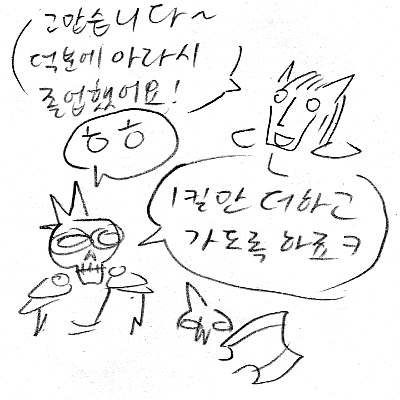 고맙습니다~
덕분에 아라시
졸업했어요!
ㅎㅎ
1킬만 더하고
가도록 하죠ㅋ